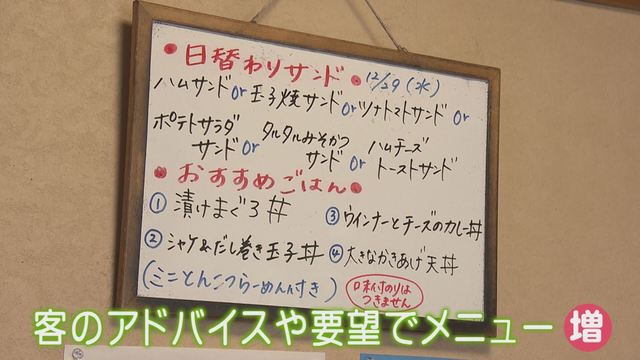 • 日替わりサンド • 12/29(水)
ハムサンド or 玉子焼サンド or ツナトマトサンド or
ポテトサラダサンド or タルタルみそかつサンド or ハムチーズトーストサンド
• おすすめごはん •
① 漬けまぐろ丼
② シャケ&だし巻き玉子丼
③ ウインナーとチーズのカレー丼
④ 大きなかきあげ天丼
(ミニとんこつらーめん付き)
味付のりは
つきません
客のアドバイスや要望でメニュー増